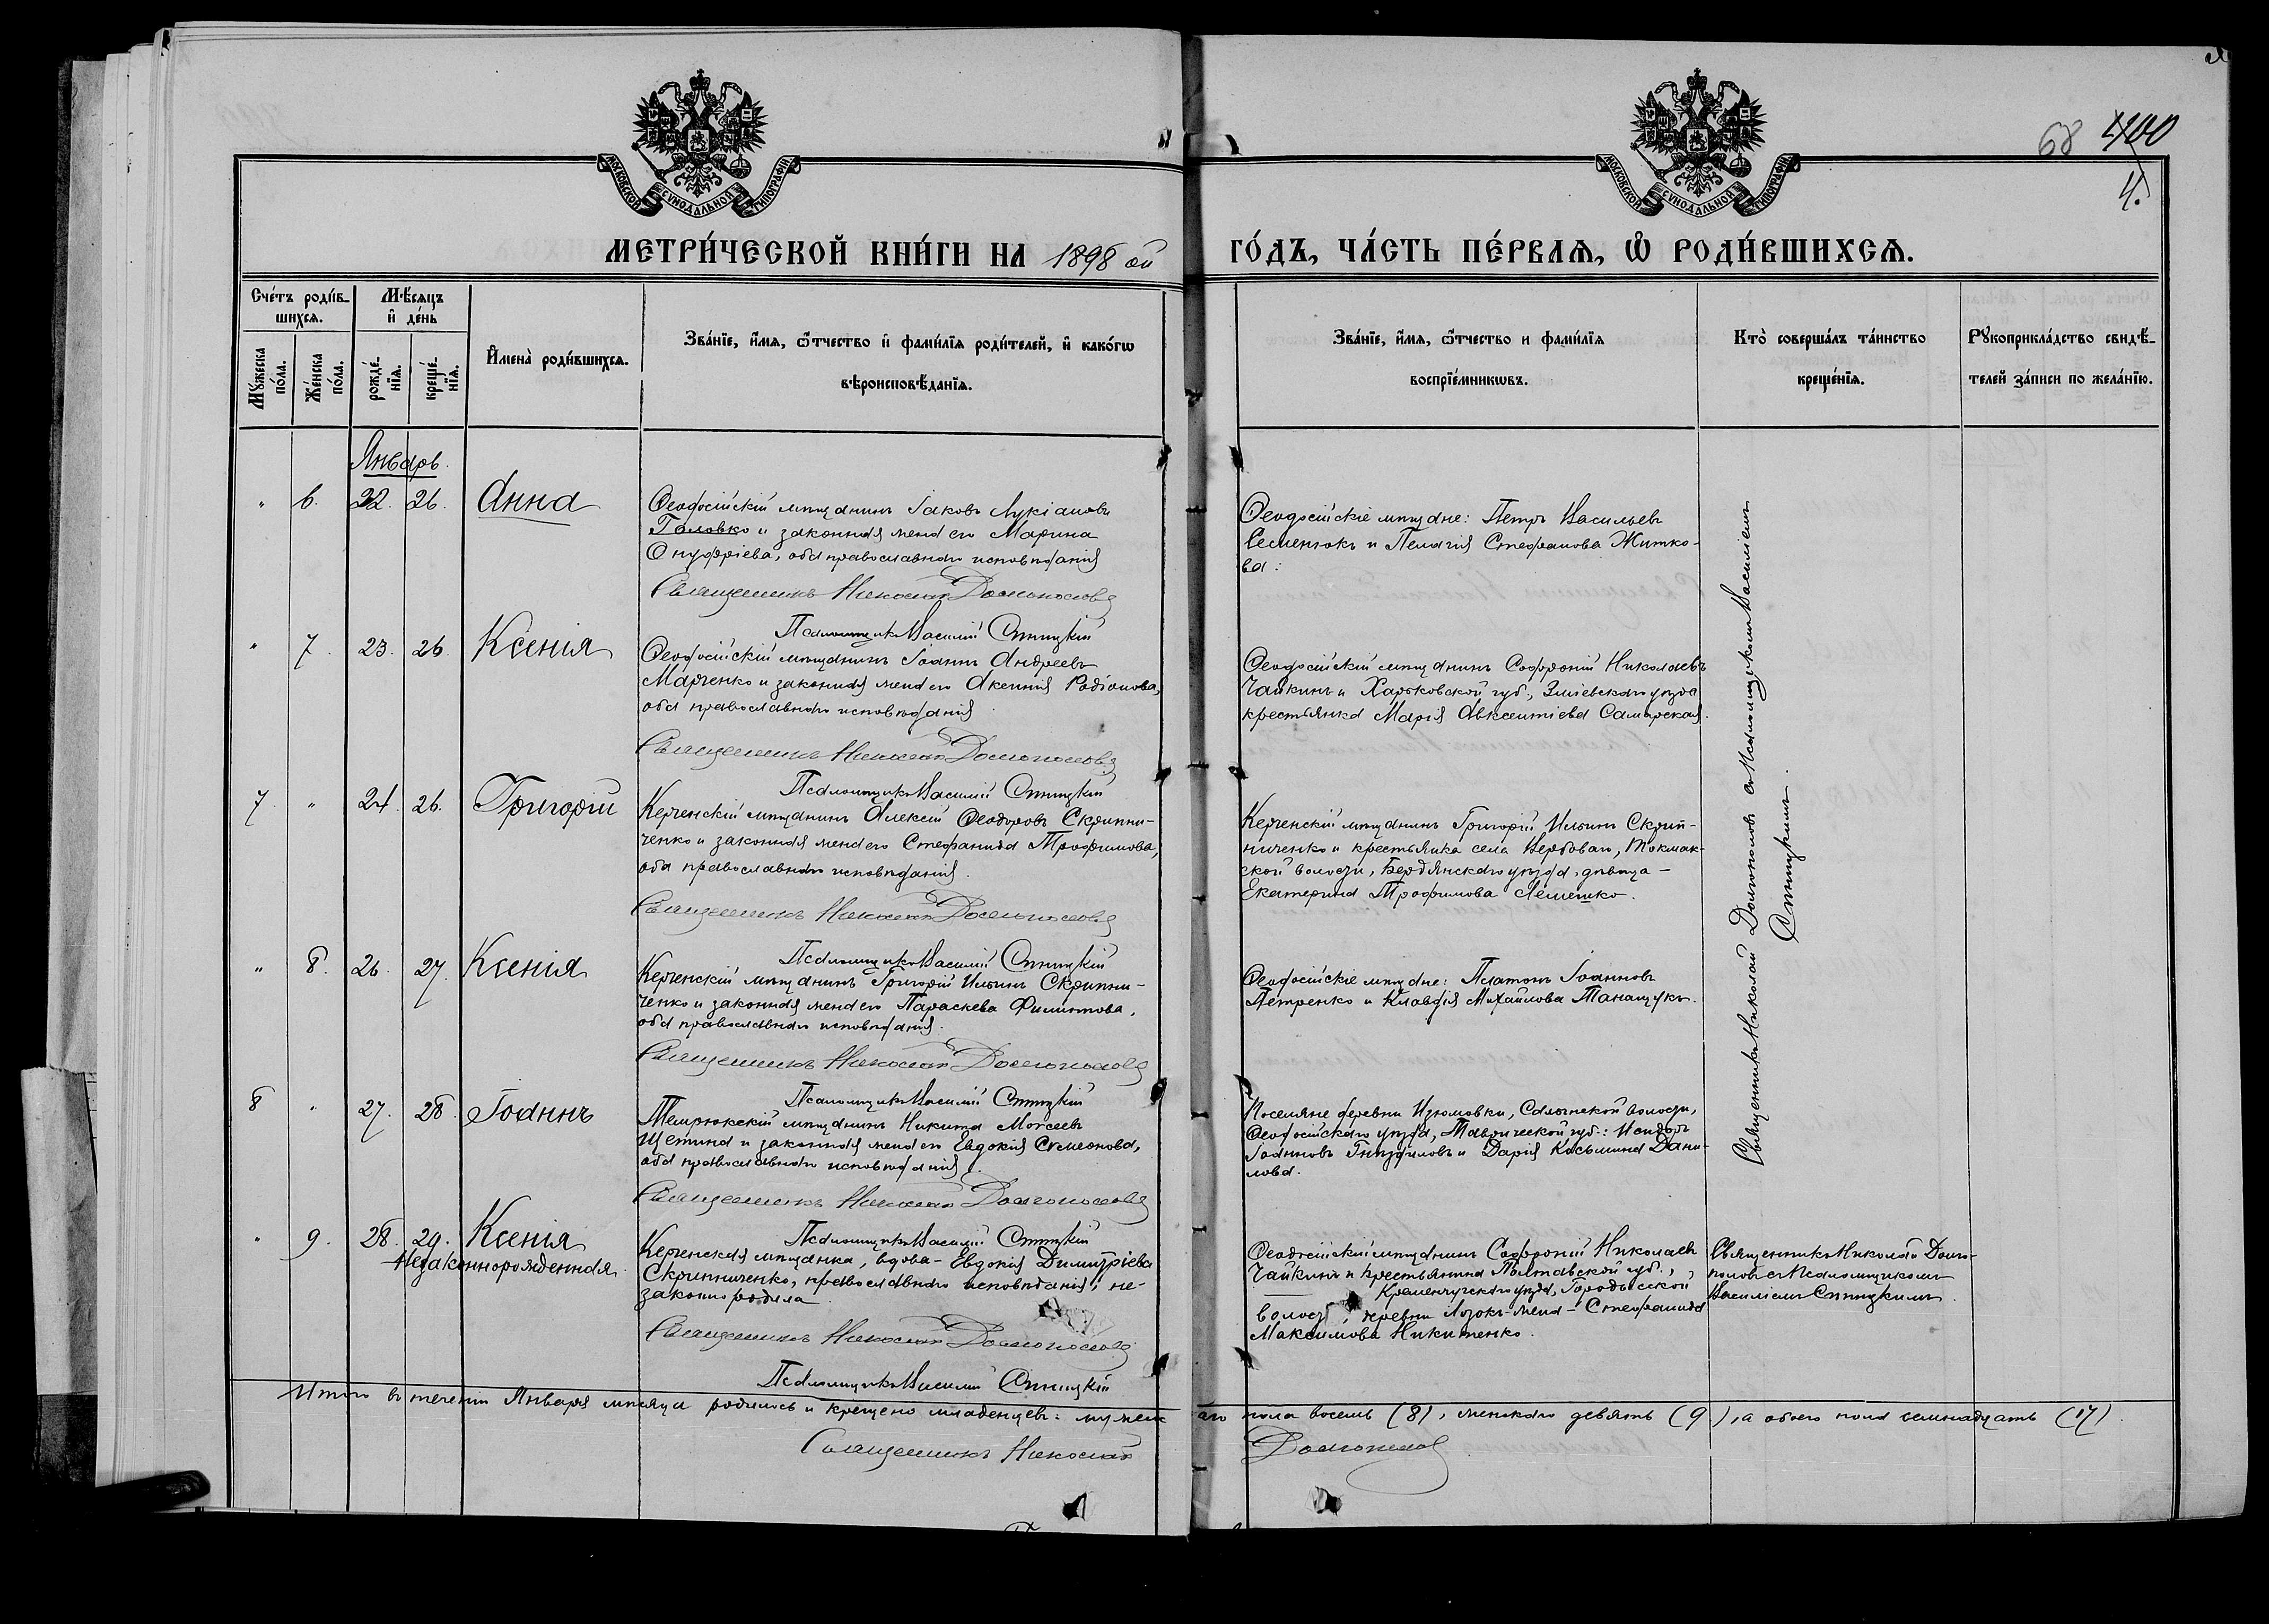 68 400
4.
МОСКОВСКОЙ СѴНОДАЛЬНОЙ ТИПОГРАФІИ
МОСКОВСКОЙ СѴНОДАЛЬНОЙ ТИПОГРАФІИ
МЕТРИ́ЧЕСКОЙ КНИ́ГИ НА 1898 ой ГО́ДЪ, ЧА́СТЬ ПЕ́РВАѦ, Ѡ РОДИ́ВШИХСѦ.
Сче́тъ роди́в-
шихсѧ.
Мꙋжеска
по́ла.
Же́нска
по́ла.
Мѣ́сѧцъ
и де́нь
рожде́-
нїѧ.
креще́-
нїѧ.
Имена̀ роди́вшихсѧ.
Зва́нїе, и́мѧ, ѻ́тчество и фами́лїѧ роди́телей, и како́гѡ
вѣроисповѣ́данїѧ.
Зва́нїе, и́мѧ, ѻ́тчество и фами́лїѧ
воспрїе́мникѡвъ.
Кто̀ соверша́лъ та́инство
креще́нїѧ.
Рꙋкоприкла́дство свидѣ́-
телей за́писи по жела́нїю.
Январь.
" 6. 22. 26. Анна
Ѳеодосійскій мѣщанинъ Іаковъ Лукіановъ
Головко и законная жена его Марина
Онуфріева, оба православнаго исповѣданія
Священникъ Николай Долгополовъ
Псаломщикъ Василій Спицкій
Ѳеодосійскіе мѣщане: Петръ Васильевъ
Семенюкъ и Пелагія Стефанова Житко-
ва:
" 7. 23. 26. Ксенія
Ѳеодосійскій мѣщанинъ Іоаннъ Андреевъ
Марченко и законная жена его Акепсія Родіонова,
оба православнаго исповѣданія
Священникъ Николай Долгополовъ
Псаломщикъ Василій Спицкій
Ѳеодосійскій мѣщанинъ Софроній Николаевъ
Чайкинъ и Харьковской губ., Зміевскаго уѣзда
крестьянка Марія Авксентіева Самарская.
7 " 24. 26. Григорій
Керченскій мѣщанинъ Алексій Ѳеодоровъ Скрипни-
ченко и законная жена его Стефанида Трофимова,
оба православнаго исповѣданія.
Священникъ Николай Долгополовъ
Псаломщикъ Василій Спицкій
Керченскій мѣщанинъ Григорій Ильинъ Скрип-
ниченко и крестьянка села Вербоваго, Токмак-
ской волости, Бердянскаго уѣзда, дѣвица -
Екатерина Трофимова Лемешко.
" 8. 26. 27. Ксенія
Керченскій мѣщанинъ Григорій Ильинъ Скрипни-
ченко и законная жена его Параскева Филиппова,
оба православнаго исповѣданія.
Священникъ Николай Долгополовъ
Псаломщикъ Василій Спицкій
Ѳеодосійскіе мѣщане: Платонъ Іоанновъ
Петренко и Клавдія Михайлова Танащукъ.
8 " 27. 28. Іоаннъ
Темрюкскій мѣщанинъ Никита Моѵсеевъ
Щетина и законная жена его Евдокія Симеонова,
оба православнаго исповѣданія.
Священникъ Николай Долгополовъ
Псаломщикъ Василій Спицкій
Поселяне деревни Изюмовки, Салынской волости,
Ѳеодосійскаго уѣзда, Таврической губ.: Исидоръ
Іоанновъ и Дарія Косьмина Дани-
лова.
Священникъ Николай Долгополовъ съ Псаломщикомъ Василіемъ
Спицкимъ.
" 9. 28. 29. Ксенія
Незаконнорожденная
Керченская мѣщанка, вдова - Евдокія Димитріева
Скрипниченко, православнаго исповѣданія, не-
законно родила
Священникъ Николай Долгополовъ
Псаломщикъ Василій Спицкій
Ѳеодосійскій мѣщанинъ Софроній Николаевъ
Чайкинъ и крестьянина Полтавской губ.,
Кременчугскаго уѣзда, Городысской
волост, деревни жена - Стефанида
Максимова Никитенко.
Священникъ Николай Долго-
половъ съ Псаломщикомъ
Василіемъ Спицкимъ.
Итого въ теченіи Января мѣсяца родилось и крещено младенцевъ: мужскаго пола восемь (8), женскаго девять (9), а обоего пола семнадцать (17).
Священникъ Николай Долгополовъ